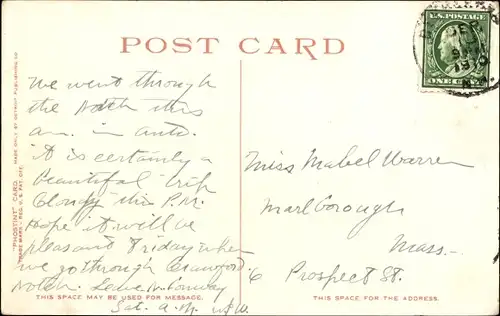 POST CARD
"PHOSTINT" CARD. MADE ONLY BY DETROIT PUBLISHING CO.
TRADE MARK - REG. U.S. PAT. OFF.
We went through
the Notch this
a.m. in auto.
It is certainly a
beautiful trip
Cloudy this P.M.
Hope it will be
pleasant Friday when
we go through Crawford
Notch. Leave N. Conway
Sat. a.m.
THIS SPACE MAY BE USED FOR MESSAGE.
U.S. POSTAGE
ONE CENT
SEP
9
1910
N.H.
Miss Mabel Warren
Marlborough
Mass-
6 Prospect St.
THIS SPACE IS FOR THE ADDRESS.